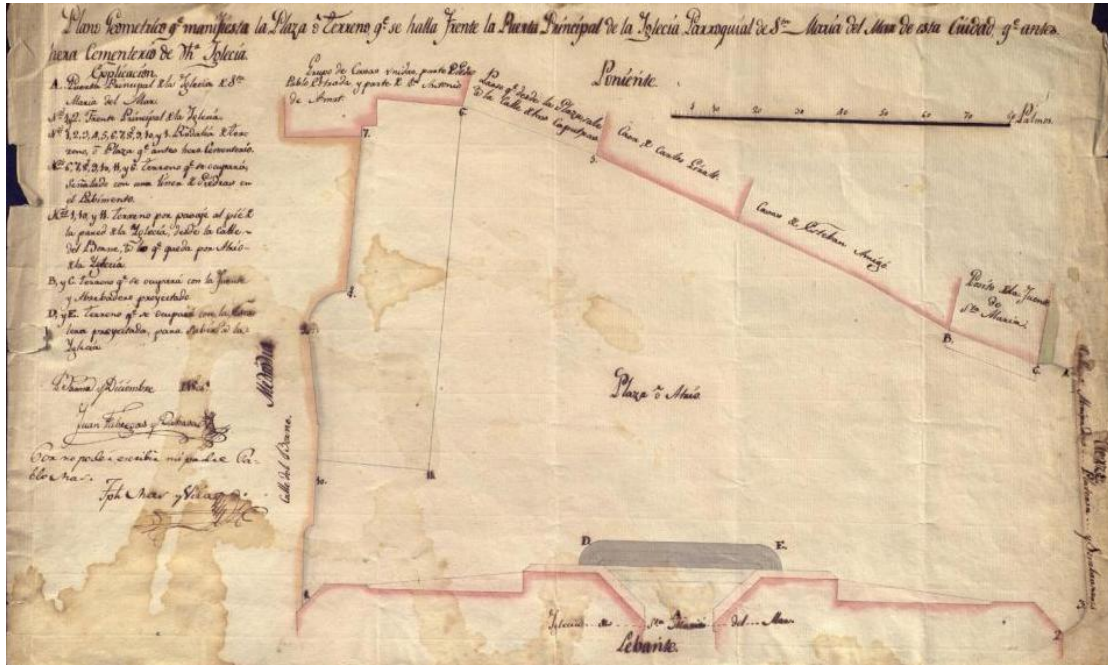 Plano Geometrico qᵉ manifiesta la Plaza ō Terreno qᵉ se halla Frente la Puerta Principal de la Iglecia Parroquial de Sᵗᵃ Maria del Mar de esta Ciudad, qᵉ antes
hera Cementerio de dhᵃ Iglecia.
Explicacion
A. Puerta Principal de la Iglecia de Sᵗᵃ
Maria del Mar.
Nᵒˢ 1, 2. Frente Principal de la Iglecia.
Nᵒˢ 1, 2, 3, 4, 5, 6, 7, 8, 9, 10, y 1. Terreno, ō Plaza qᵉ antes hera Cementerio.
Nᵒˢ 6, 7, 8, 9, 10, 11, y 6. Terreno qᵉ se ocuparà,
señalado con una linea de Piedras en
el Pabimento.
Nᵒˢ 1, 10, y 11. Terreno por pasaje al pié de
la pared de la Iglecia, desde la Calle
del Borne, à lo qᵉ queda por Atrio
de la Iglecia
B, y C. Terreno qᵉ se ocuparà con la Fuente
y Abrebadero proyectado
D, y E. Terreno qᵉ se ocuparà con la
proyectada, para subir à la
Iglecia
y Diciembre
Juan Fabregas y
Por no poder escribir mi padre Pa-
blo Mar.
Jph Mar y
Grupo de Casas unidas, parte de
Pablo Estrada, y parte de Dⁿ Antonio
de Amat.
Paso qᵉ desde la Plaza sale
à la Calle de los Caputxas
Poniente
10 20 30 40 50 60 70 80 Palmos
Casa de Carlos
Casas de Esteban Amigó
Parte de la Fuente
de
Sᵗᵃ Maria
6.
7.
5.
8.
9.
B.
C.
4.
Mediodia
Calle del Borne.
Plaza ō Atrio.
11.
10.
D.
E.
3.
1.
2.
A
Iglecia de Sᵗᵃ Maria del Mar.
Lebante.